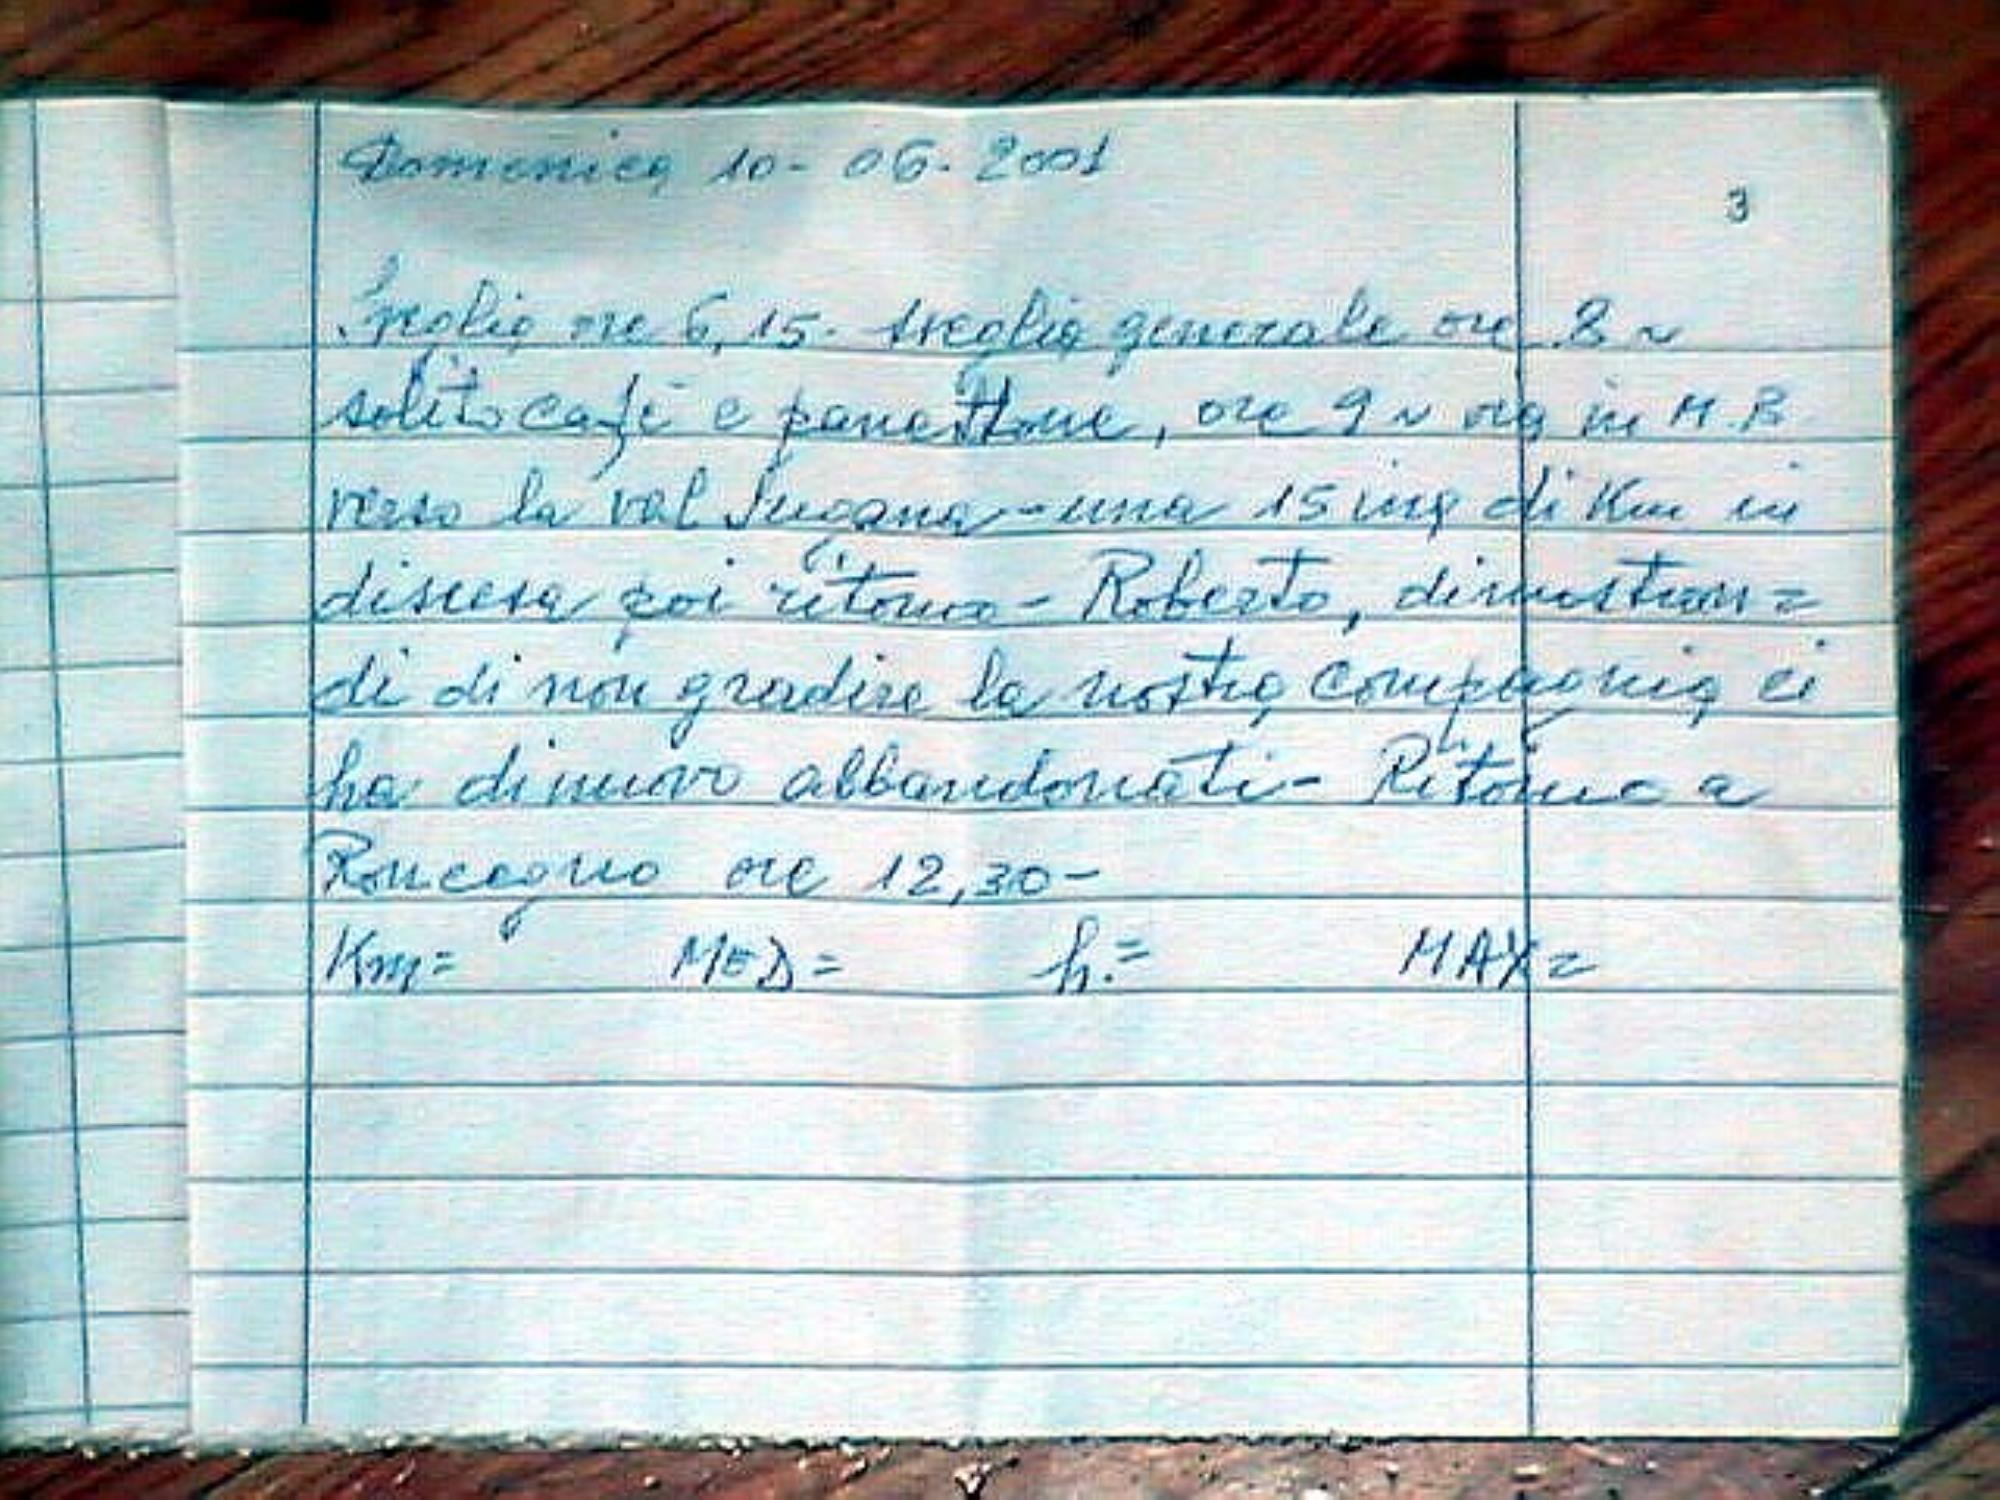 Domenica 10-06-2001
3
Sveglia ore 6,15. sveglia generale ore 8 ~
solito cafè e panettone, ore 9 ~ via in M.B.
verso la val Sugana - una 15ina di Km in
discesa poi ritorno - Roberto, dimostran=
di di non gradire la nostra compagnia ci
ha di nuovo abbandonati - Ritorno a
Roncegno ore 12,30-
Km= MED= h.= MAX=